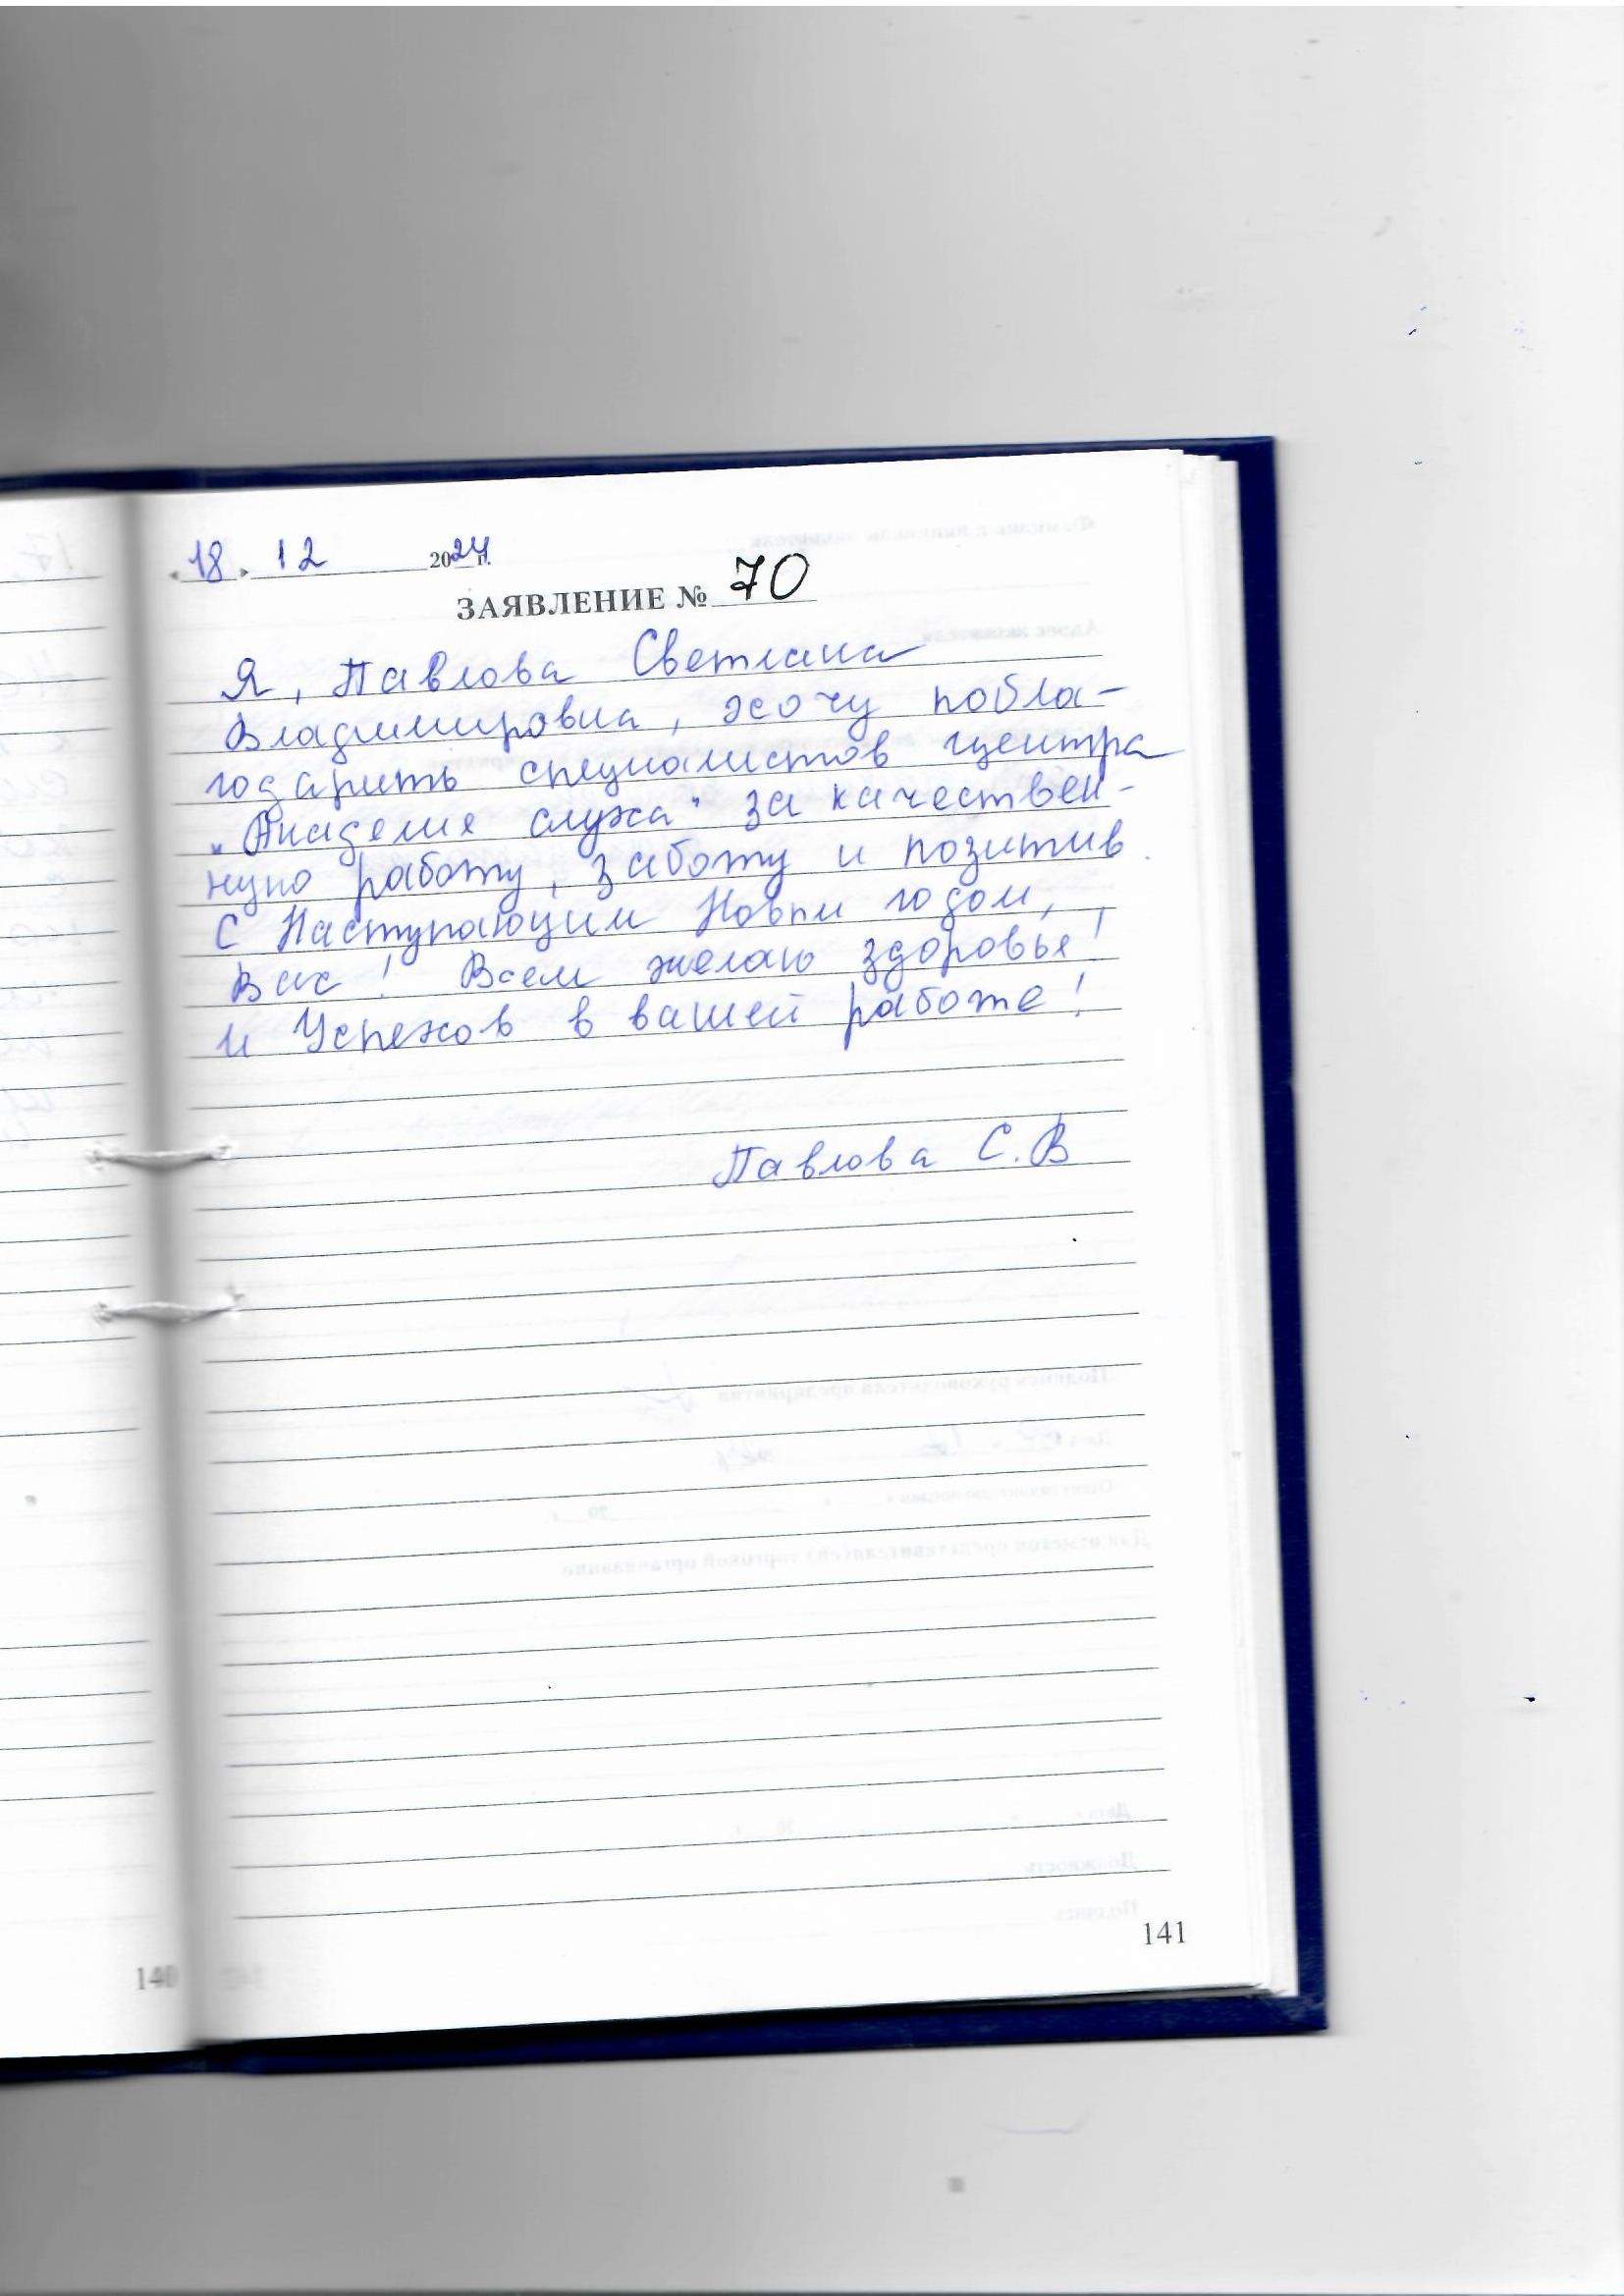 «18» 12 2024 г.
ЗАЯВЛЕНИЕ № 70
Я, Павлова Светлана
Владимировна, хочу побла-
годарить специалистов центра
"Академия слуха" за качествен-
ную работу, заботу и позитив.
С Наступающим Новым годом,
Вас! Всем желаю здоровья!
и Успехов в вашей работе!
Павлова С.В
140
141